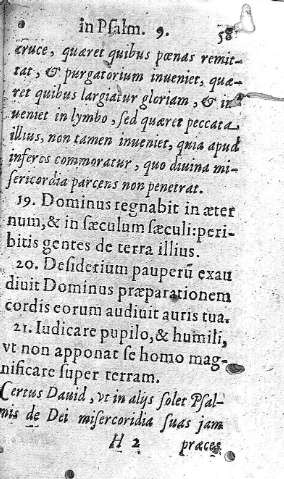 in Psalm. 9. 58
cruce, quæret quibus pœnas remit-
tat, & purgatorium inveniet, quæ-
ret quibus largiatur gloriam, & in
ueniet in lymbo, sed quæret peccata
illius, non tamen inueniet, quia apud
inferos commoratur, quo diuina mi-
sericordia parcens non penetrat.
19. Dominus regnabit in æter
num, & in sæculum sæculi: peri-
bitis gentes de terra illius.
20. Desiderium pauperũ exau
diuit Dominus præparationem
cordis eorum audiuit auris tua.
21. Iudicare pupilo, & humili,
vt non apponat se homo mag-
nificare super terram.
Certus Dauid, vt in alijs solet Psal-
mis de Dei misercoridia suas jam
H 2 præces